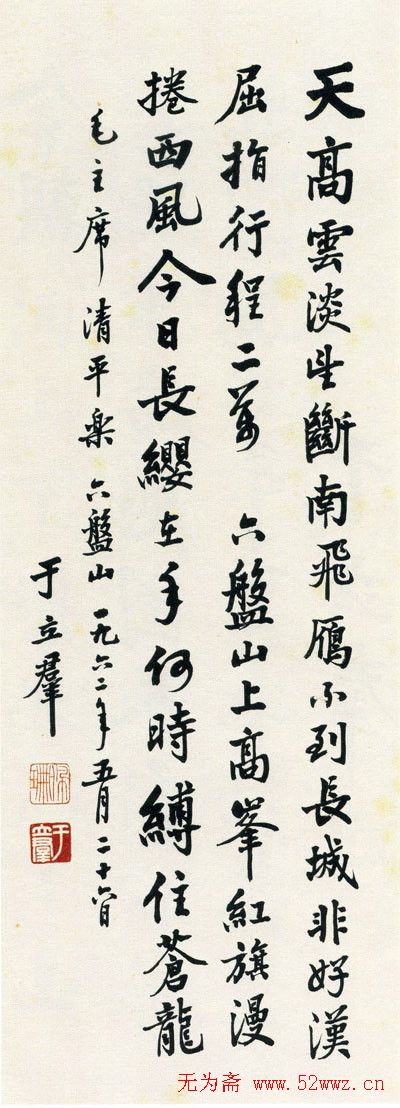 天高雲淡望斷南飛鴈不到長城非好漢
屈指行程二萬 六盤山上高峯紅旗漫
捲西風今日長纓在手何時縛住蒼龍
毛主席清平樂 六盤山 一九六二年五月二十六日
于立羣
于立羣
无为斋 www.52wwz.cn